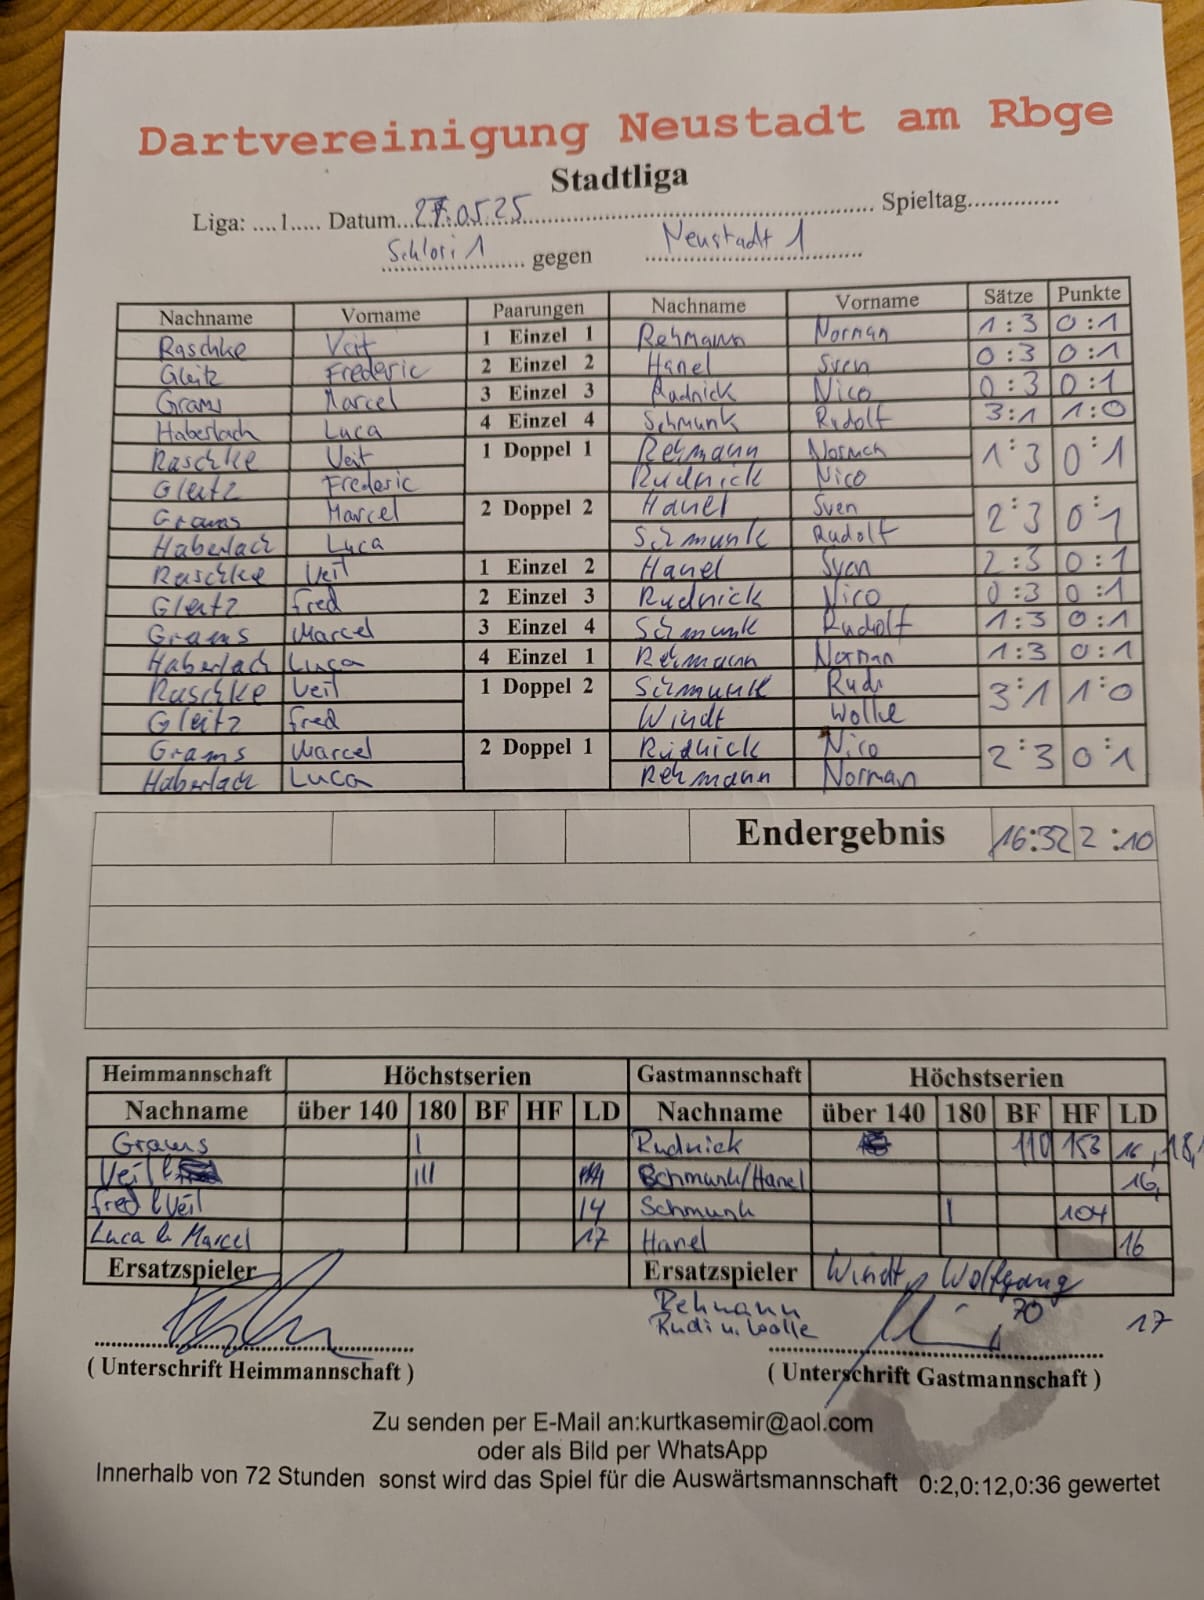 Dartvereinigung Neustadt am Rbge
Stadtliga
Liga: ....1..... Datum...27.05.25............ Spieltag..............
Schlori 1 gegen Neustadt 1
Nachname Vorname Paarungen Nachname Vorname Sätze Punkte
Raschke Veit 1 Einzel 1 Rehmann Norman 1:3 0:1
Gleitz Frederic 2 Einzel 2 Hanel Sven 0:3 0:1
Grams Marcel 3 Einzel 3 Rudnick Nico 0:3 0:1
Haberlach Luca 4 Einzel 4 Schmunk Rudolf 3:1 1:0
Raschke Veit 1 Doppel 1 Rehmann Norman 1:3 0:1
Gleitz Frederic Rudnick Nico
Grams Marcel 2 Doppel 2 Hanel Sven 2:3 0:1
Haberlach Luca Schmunk Rudolf
Raschke Veit 1 Einzel 2 Hanel Sven 2:3 0:1
Gleitz Fred 2 Einzel 3 Rudnick Nico 0:3 0:1
Grams Marcel 3 Einzel 4 Schmunk Rudolf 1:3 0:1
Haberlach Luca 4 Einzel 1 Rehmann Norman 1:3 0:1
Raschke Veit 1 Doppel 2 Schmunk Rudi 3:1 1:0
Gleitz Fred Windt Wolle
Grams Marcel 2 Doppel 1 Rudnick Nico 2:3 0:1
Haberlach Luca Rehmann Norman
Endergebnis 16:32 2:10
Heimmannschaft Höchstserien Gastmannschaft Höchstserien
Nachname über 140 180 BF HF LD Nachname über 140 180 BF HF LD
Grams I Rudnick 110 153 16, 18,
Veit III Schmunk/Hanel 16,
Fred & Veit 14 Schmunk I 104
Luca & Marcel 17 Hanel 16
Ersatzspieler Ersatzspieler Windt, Wolfgang
Rehmann 70
Rudi u. Wolle 17
( Unterschrift Heimmannschaft ) ( Unterschrift Gastmannschaft )
Zu senden per E-Mail an:kurtkasemir@aol.com
oder als Bild per WhatsApp
Innerhalb von 72 Stunden sonst wird das Spiel für die Auswärtsmannschaft 0:2,0:12,0:36 gewertet